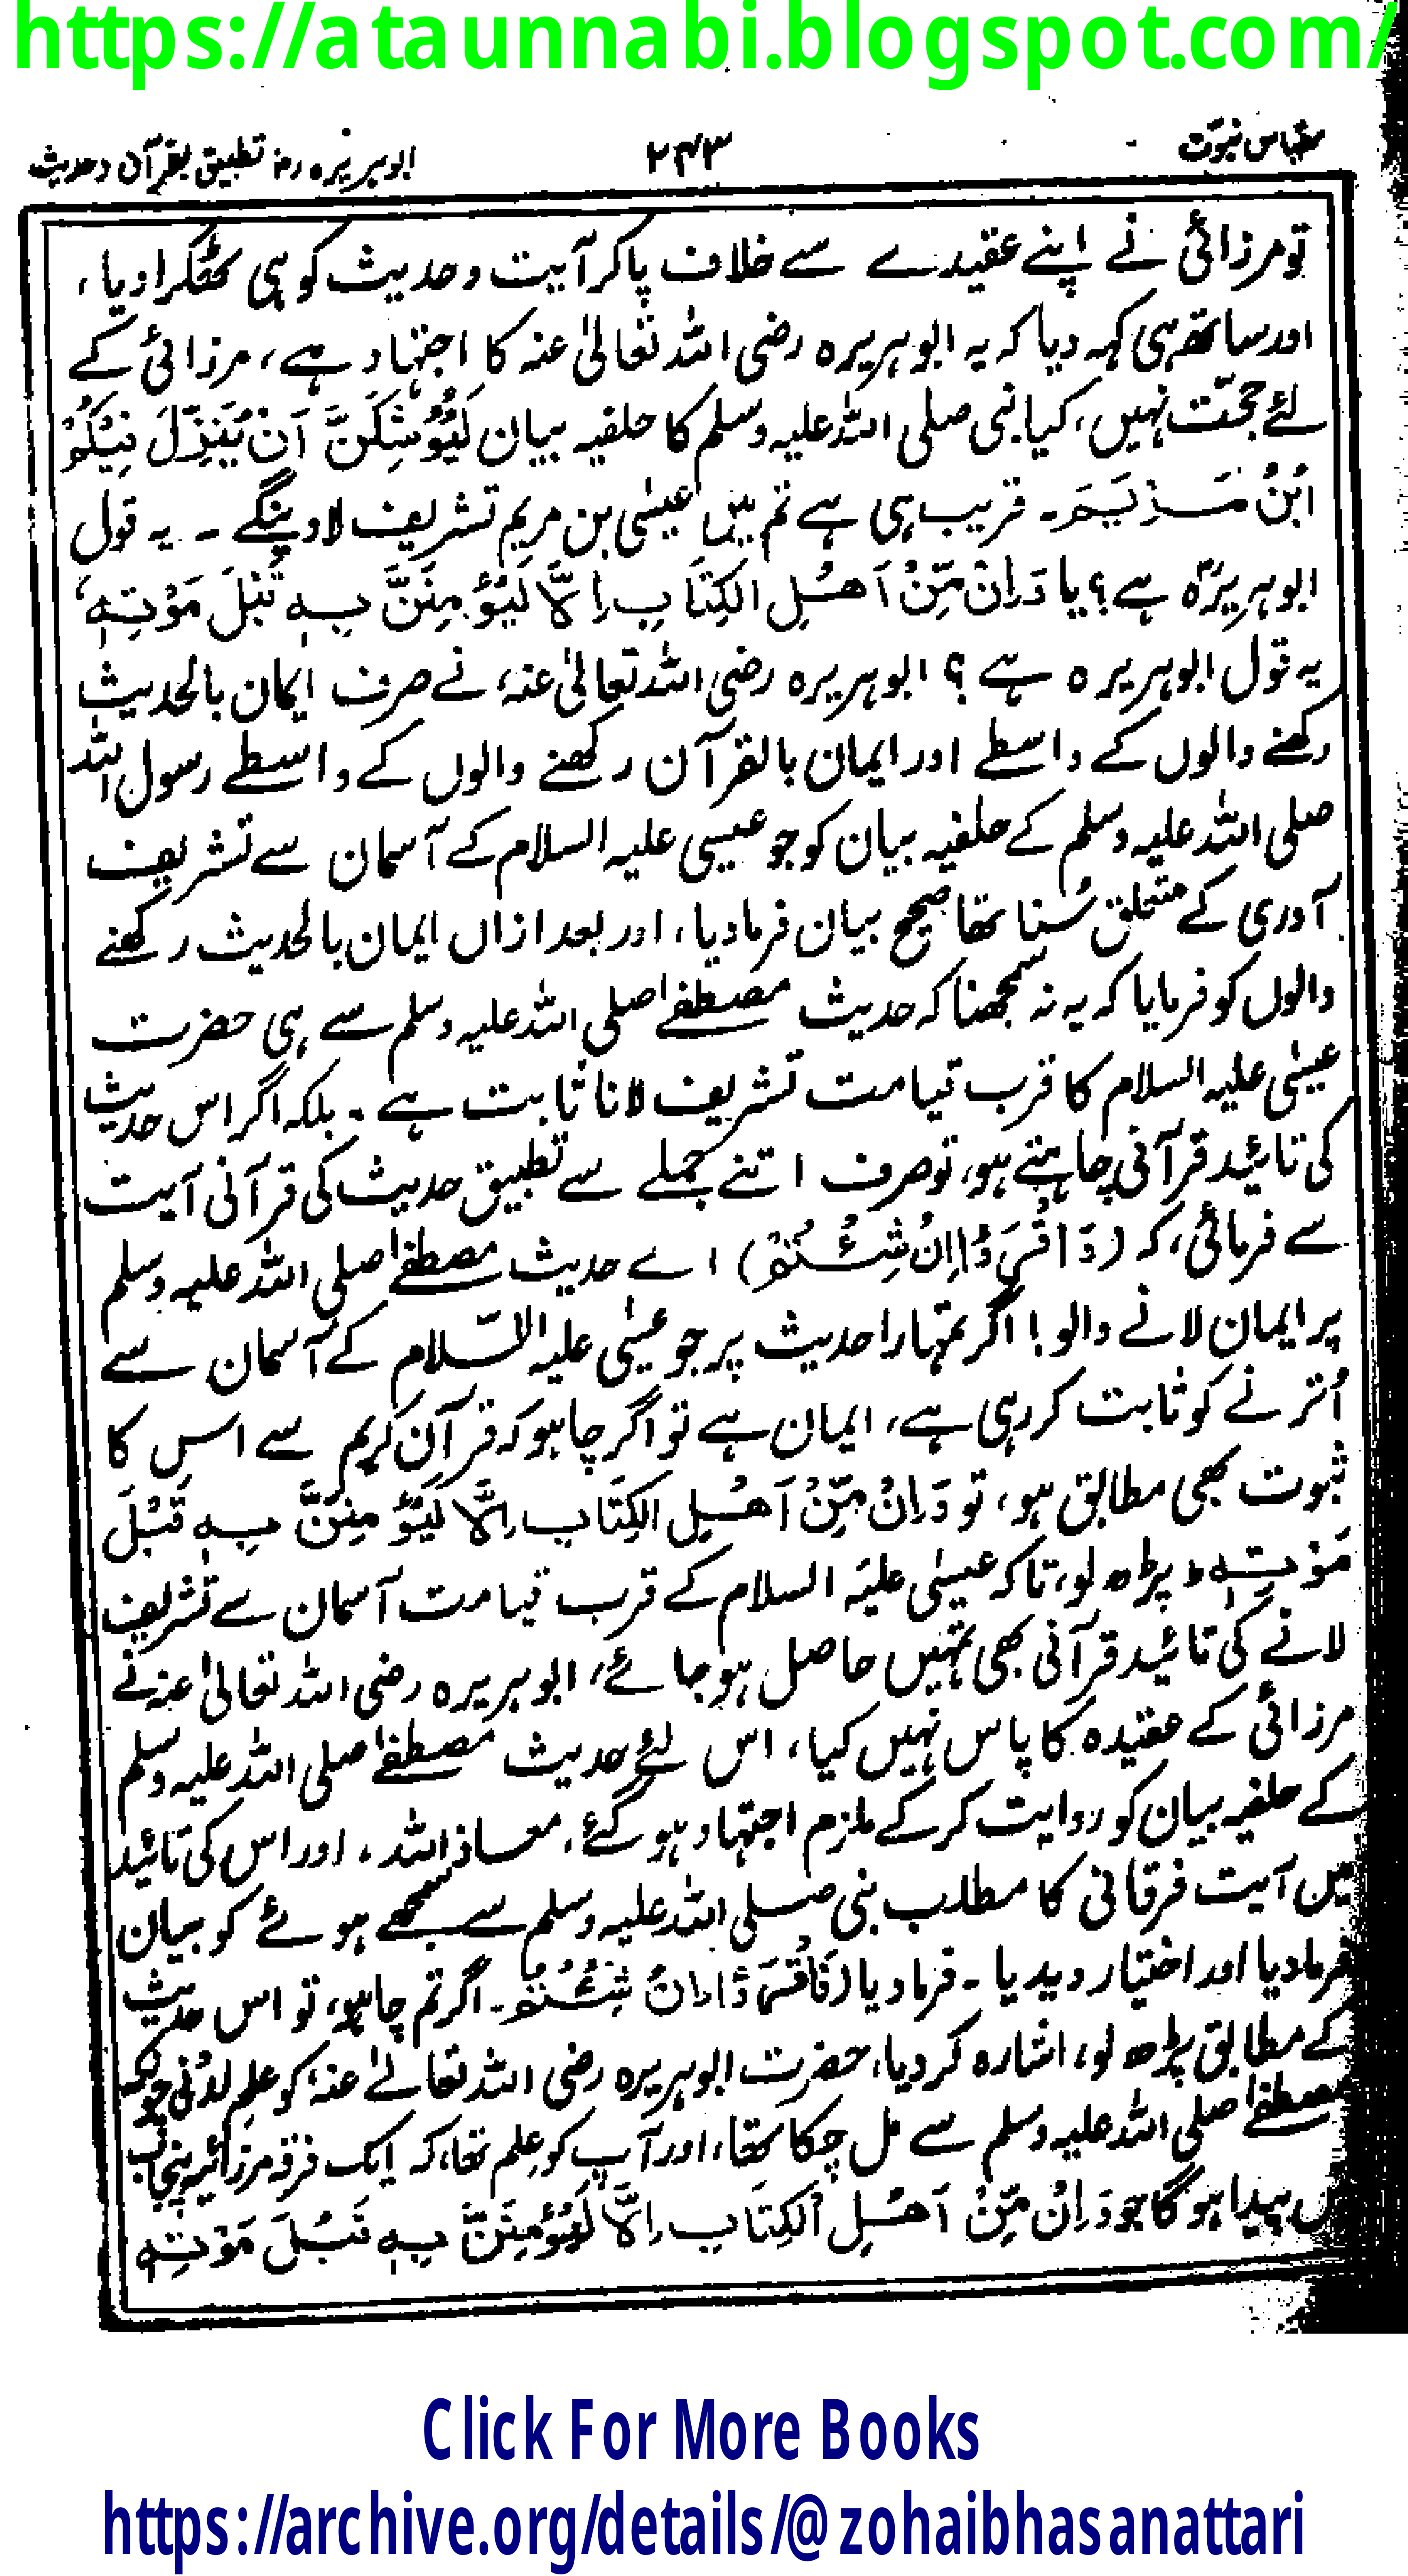 https://ataunnabi.blogspot.com/
مقیاس نبوّت ۲۴۳ ابوہریرہ رض تطبیق بقرآن وحدیث
تو مرزائی نے اپنے عقیدے سے خلاف پاکر آیت وحدیث کو ہی ٹھکرا دیا،
اور ساتھ ہی کہہ دیا کہ یہ ابوہریرہ رضی اللہ تعالیٰ عنہ کا اجتہاد ہے، مرزائی کے
لئے حجّت نہیں، کیا نبی صلی اللہ علیہ وسلم کا حلفیہ بیان لَیُوْشِکَنَّ اَنْ یَّنْزِلَ فِیْکُمْ
ابْنُ مَرْیَمَ۔ قریب ہی ہے تم میں عیسیٰ بن مریم تشریف لاوینگے ۔ یہ قول
ابوہریرہؓ ہے؟ یا وَاِنْ مِّنْ اَھْلِ الْکِتَابِ اِلَّا لَیُؤْمِنَنَّ بِہٖ قَبْلَ مَوْتِہٖ،
یہ قول ابوہریرہ ہے ؟ ابوہریرہ رضی اللہ تعالیٰ عنہ، نے صرف ایمان بالحدیث
رکھنے والوں کے واسطے اور ایمان بالقرآن رکھنے والوں کے واسطے رسول اللہ
صلی اللہ علیہ وسلم کے حلفیہ بیان کو جو عیسیٰ علیہ السلام کے آسمان سے تشریف
آوری کے متعلق سُنا تھا صحیح بیان فرمادیا، اور بعد ازاں ایمان بالحدیث رکھنے
والوں کو فرمایا کہ یہ نہ سمجھنا کہ حدیث مصطفےٰ صلی اللہ علیہ وسلم سے ہی حضرت
عیسیٰ علیہ السلام کا قرب قیامت تشریف لانا ثابت ہے ۔ بلکہ اگر اس حدیث
کی تائید قرآنی چاہتے ہو، تو صرف اتنے جملے سے تطبیق حدیث کی قرآنی آیت
سے فرمائی، کہ (وَاقْرَءُوْا اِنْ شِئْتُمْ) اے حدیث مصطفےٰ صلی اللہ علیہ وسلم
پر ایمان لانے والو! اگر تمہارا حدیث پر جو عیسیٰ علیہ السّلام کے آسمان سے
اُترنے کو ثابت کر رہی ہے، ایمان ہے تو اگر چاہو کہ قرآن کریم سے اس کا
ثبوت بھی مطابق ہو، تو وَاِنْ مِّنْ اَھْلِ الْکِتَابِ اِلَّا لَیُؤْمِنَنَّ بِہٖ قَبْلَ
مَوْتِہٖ ط پڑھ لو، تاکہ عیسیٰ علیہ السلام کے قرب قیامت آسمان سے تشریف
لانے کی تائید قرآنی بھی تمہیں حاصل ہو جائے، ابوہریرہ رضی اللہ تعالیٰ عنہ نے
مرزائی کے عقیدہ کا پاس نہیں کیا، اس لئے حدیث مصطفےٰ صلی اللہ علیہ وسلم
کے حلفیہ بیان کو روایت کرکے ملزم اجتہاد ہو گئے، معاذ اللہ ، اور اس کی تائید
میں آیت فرقانی کا مطلب نبی صلی اللہ علیہ وسلم سے سمجھے ہوئے کو بیان
فرمادیا اور اختیار دیدیا ۔ فرمادیا (فَاقْرَءُوْا اِنْ شِئْتُمْ ۔ اگر تم چاہو، تو اس حدیث
کے مطابق پڑھ لو، اشارہ کردیا، حضرت ابوہریرہ رضی اللہ تعالےٰ عنہ، کو علم لدُنی جوکہ
مصطفےٰ صلی اللہ علیہ وسلم سے مل چکا تھا، اور آپ کو علم تھا، کہ ایک فرقہ مرزائیہ پنجاب
میں پیدا ہوگا جو وَاِنْ مِّنْ اَھْلِ الْکِتَابِ اِلَّا لَیُؤْمِنَنَّ بِہٖ قَبْلَ مَوْتِہٖ
Click For More Books
https://archive.org/details/@zohaibhasanattari